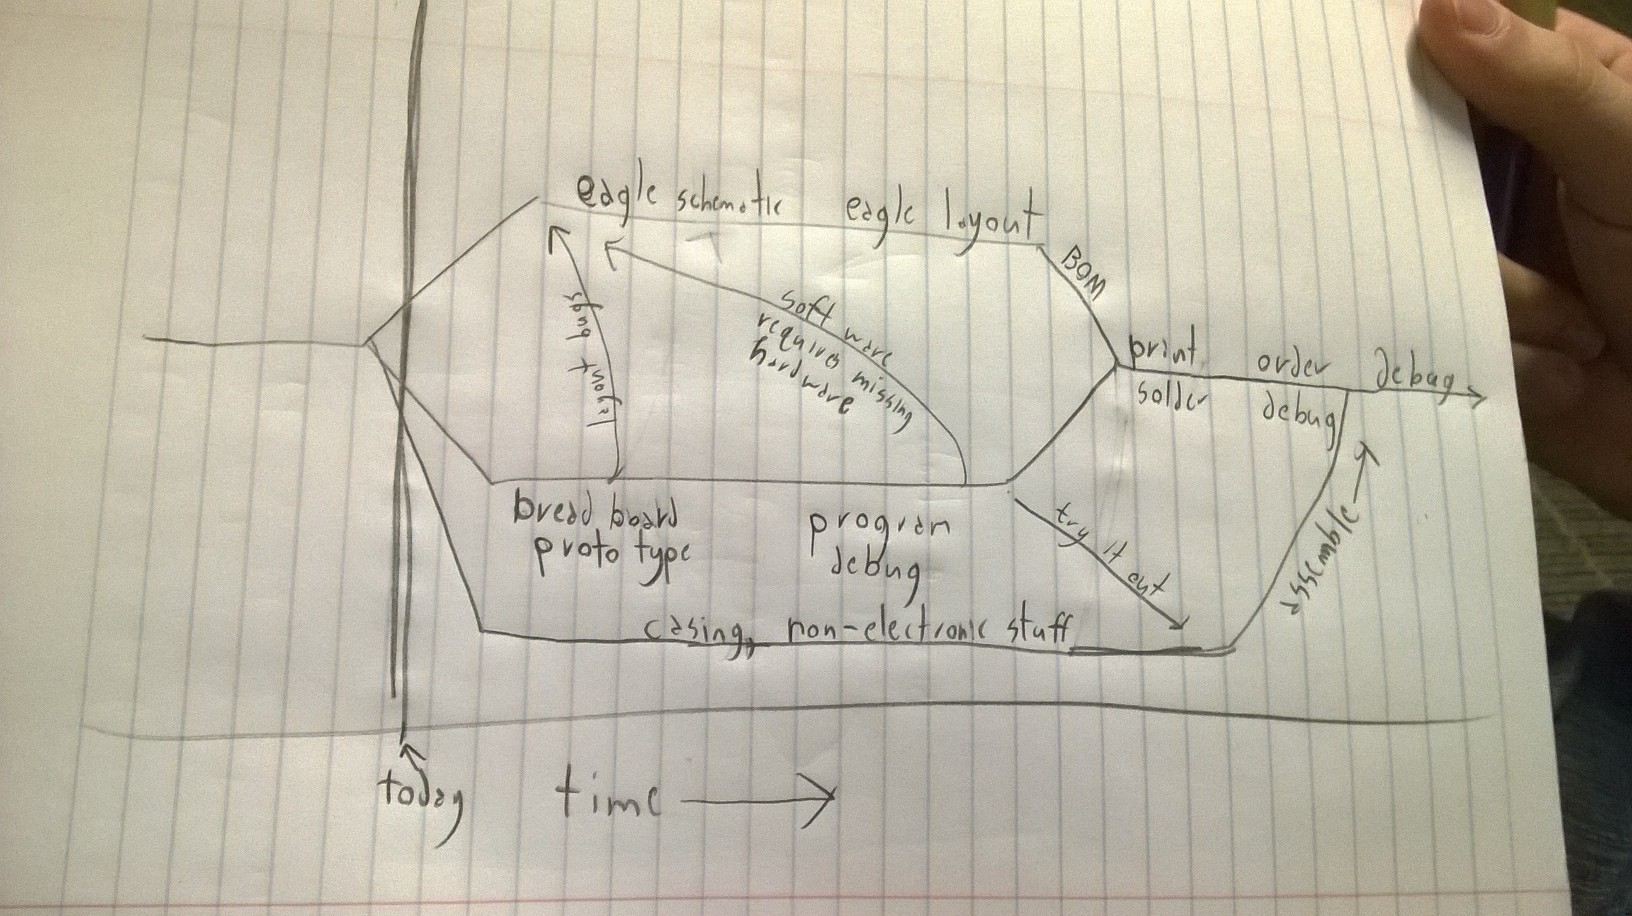 eagle schematic eagle layout
BOM
layout bugs
soft ware
requires missing
hardware
print order debug
solder debug
bread board
proto type
program
debug
try it out
assemble
casing, non-electronic stuff
today
time